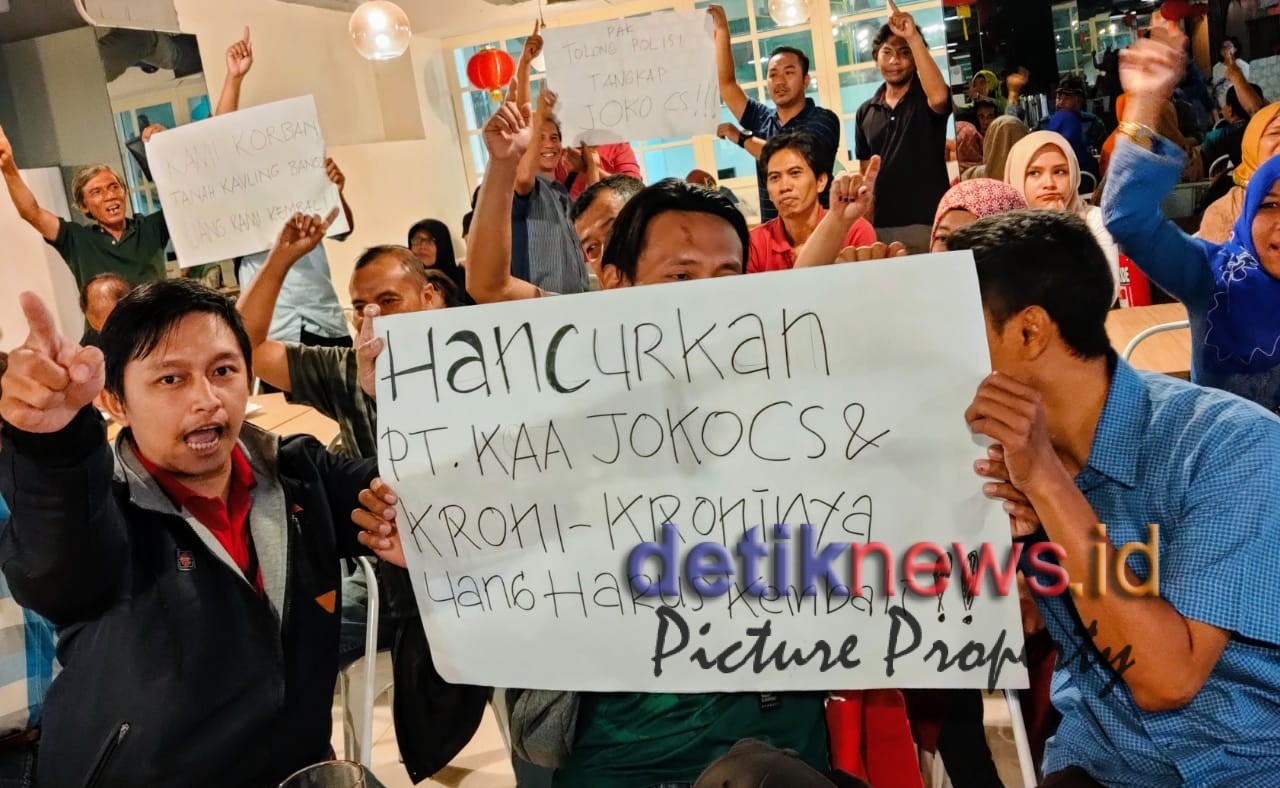 PAK
TOLONG POLISI
TANGKAP
JOKO CS!!!
KAMI KORBAN
TANAH KAVLING
UANG KAMI KEMBALI
HANCURKAN
PT. KAA JOKOCS &
KRONI-KRONINYA
UANG HARUS KEMBALI!!
detiknews.id
Picture Property